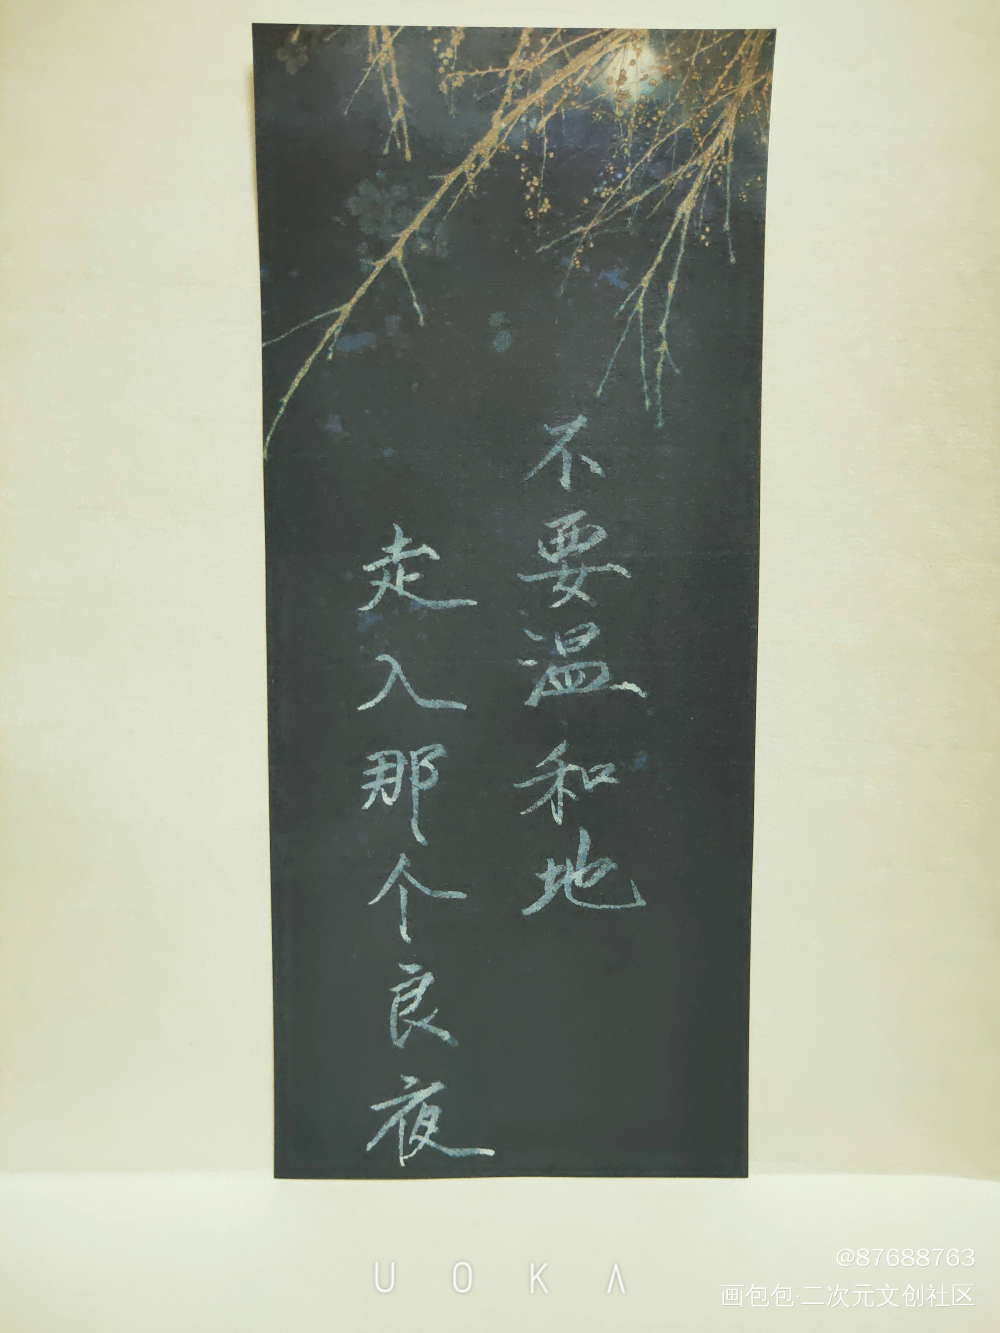 不要温和地
走入那个良夜
UOKA
@87688763
画包包·二次元文创社区